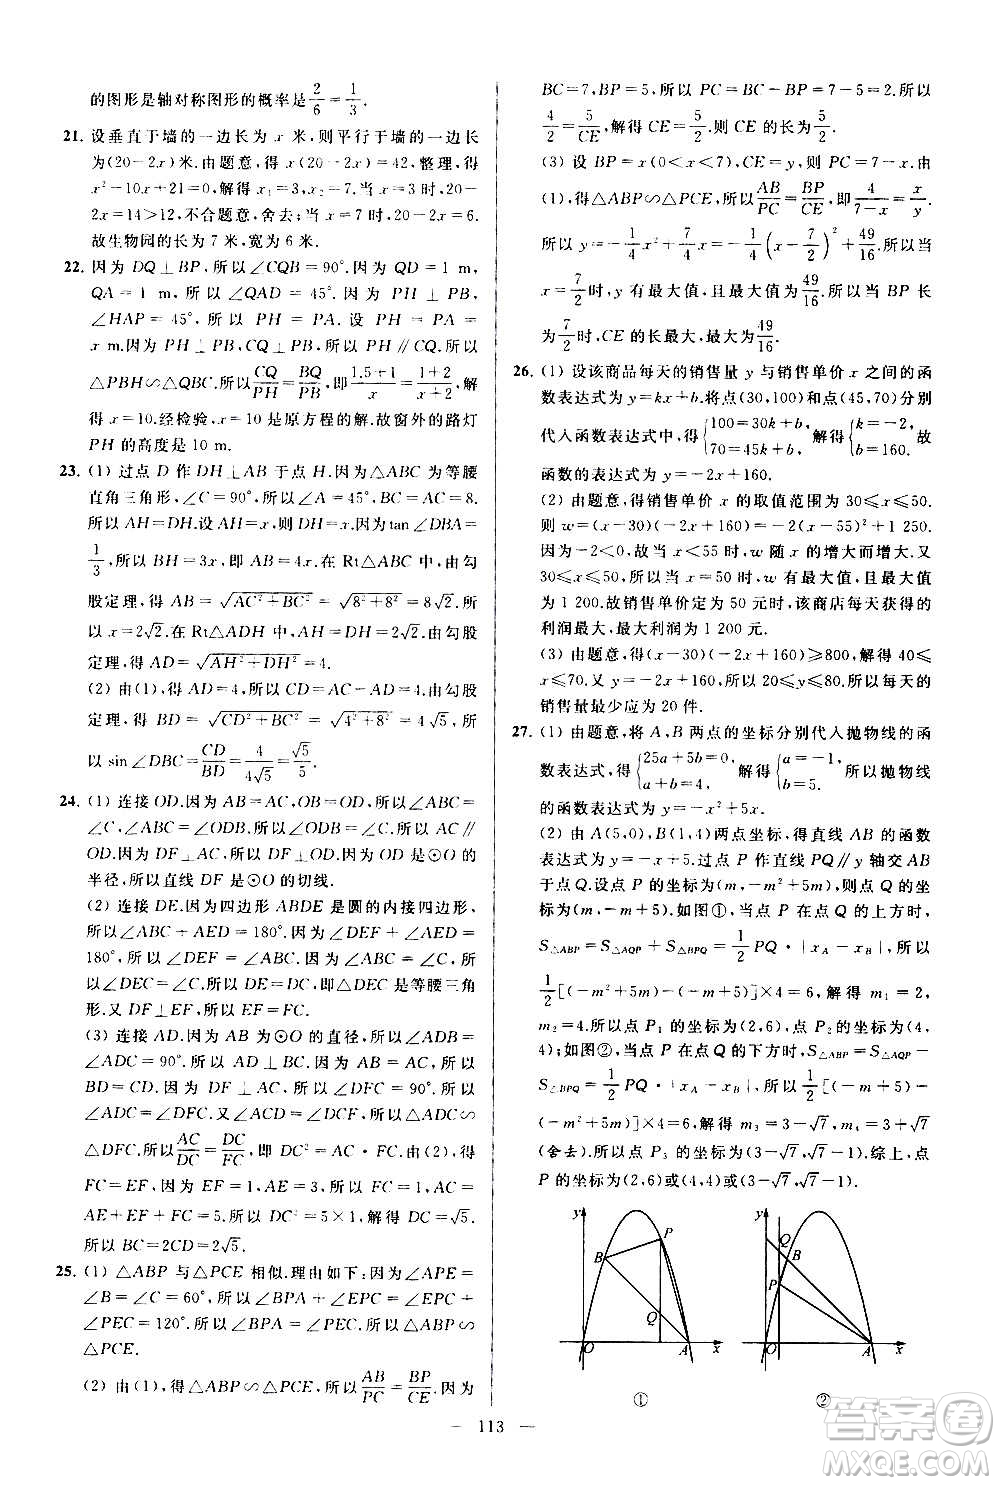 的图形是轴对称图形的概率是2/6=1/3.
21. 设垂直于墙的一边长为 x 米,则平行于墙的一边长
为(20-2x)米.由题意,得 x(20-2x)=42,整理,得
x²-10x+21=0,解得 x₁=3,x₂=7.当 x=3 时,20-
2x=14>12,不合题意,舍去;当 x=7 时,20-2x=6.
故生物园的长为 7 米,宽为 6 米.
22. 因为 DQ⊥BP,所以∠CQB=90°.因为 QD=1 m,
QA=1 m,所以∠QAD=45°.因为 PH⊥PB,
∠HAP=45°,所以 PH=PA.设 PH=PA=
x m.因为 PH⊥PB,CQ⊥PB,所以 PH∥CQ.所以
△PBH∽△QBC.所以CQ/PH=BQ/PB,即(1.5+1)/x=(1+2)/(x+2),解
得 x=10.经检验,x=10 是原方程的解.故窗外的路灯
PH 的高度是 10 m.
23. (1) 过点 D 作 DH⊥AB 于点 H.因为△ABC 为等腰
直角三角形,∠C=90°,所以∠A=45°,BC=AC=8.
所以 AH=DH.设 AH=x,则 DH=x.因为 tan∠DBA=
1/3,所以 BH=3x.所以在 Rt△ABC 中,由勾
股定理,得 AB=√(AC²+BC²)=√(8²+8²)=8√2.所
以 x=2√2.在 Rt△ADH 中,AH=DH=2√2.由勾股
定理,得 AD=√(AH²+DH²)=4.
(2) 由(1),得 AD=4,所以 CD=AC-AD=4.由勾股
定理,得 BD=√(CD²+BC²)=√(4²+8²)=4√5,所
以 sin∠DBC=CD/BD=4/(4√5)=√5/5.
24. (1) 连接 OD.因为 AB=AC,OB=OD,所以∠ABC=
∠C,∠ABC=∠ODB.所以∠ODB=∠C.所以 AC∥
OD.因为 DF⊥AC,所以 DF⊥OD.因为 OD 是⊙O 的
半径,所以直线 DF 是⊙O 的切线.
(2) 连接 DE.因为四边形 ABDE 是圆的内接四边形,
所以∠ABC+∠AED=180°.因为∠DEF+∠AED=
180°,所以∠DEF=∠ABC.因为∠ABC=∠C,所以
∠DEC=∠C.所以 DE=DC,即△DEC 是等腰三角
形.又 DF⊥EF,所以 EF=FC.
(3) 连接 AD.因为 AB 为⊙O 的直径,所以∠ADB=
∠ADC=90°.所以 AD⊥BC.因为 AB=AC,所以
BD=CD.因为 DF⊥AC,所以∠DFC=90°.所以
∠ADC=∠DFC.又∠ACD=∠DCF,所以△ADC∽
△DFC.所以AC/DC=DC/FC,所以 DC²=AC·FC.由(2),得
FC=EF.因为 EF=1,AE=3,所以 FC=1,AC=
AE+EF+FC=5.所以 DC²=5×1,解得 DC=√5.
所以 BC=2CD=2√5.
25. (1) △ABP 与△PCE 相似.理由如下:因为∠APE=
∠B=∠C=60°,所以∠BPA+∠EPC=∠EPC+
∠PEC=120°.所以∠BPA=∠PEC.所以△ABP∽
△PCE.
(2) 由(1),得△ABP∽△PCE,所以AB/PC=BP/CE.因为
BC=7,BP=5,所以 PC=BC-BP=7-5=2.所以
4/2=5/CE,解得 CE=5/2.则 CE 的长为5/2.
(3) 设 BP=x(0<x<7),CE=y,则 PC=7-x.由
(1),得△ABP∽△PCE,所以AB/PC=BP/CE,即4/(7-x)=x/y.
所以 y=-1/4x²+7/4x=-1/4(x-7/2)²+49/16.所以当
x=7/2时,y 有最大值,最大值为49/16.所以当 BP 长
为7/2时,CE 的长最大,最大为49/16.
26. (1) 设该商品每天的销售量 y 与销售单价 x 之间的函
数表达式为 y=kx+b.将点(30,100)和点(45,70)分别
代入函数表达式中,得{100=30k+b, 70=45k+b, 解得{k=-2, b=160. 故
函数的表达式为 y=-2x+160.
(2) 由题意,得销售单价 x 的取值范围为 30≤x≤50.
则 w=(x-30)(-2x+160)=-2(x-55)²+1 250.
因为-2<0,故当 x<55 时,w 随 x 的增大而增大.又
30≤x≤50,所以当 x=50 时,w 有最大值,最大值
为 1 200.故销售单价定为 50 元时,该商店每天获得的
利润最大,最大利润为 1 200 元.
(3) 由题意,得(x-30)(-2x+160)≥800,解得 40≤
x≤70.又 y=-2x+160,所以 20≤y≤80.所以每天的
销售量最少应为 20 件.
27. (1) 由题意,将 A,B 两点的坐标分别代入抛物线的函
数表达式,得{25a+5b=0, a+b=4, 解得{a=-1, b=5. 所以抛物线
的函数表达式为 y=-x²+5x.
(2) 由 A(5,0),B(1,4)两点坐标,得直线 AB 的函数
表达式为 y=-x+5.过点 P 作直线 PQ∥y 轴交 AB
于点 Q.设点 P 的坐标为(m,-m²+5m),则点 Q 的坐
标为(m,-m+5).如图①,当点 P 在点 Q 的上方时,
S△ABP=S△AQP+S△BPQ=1/2PQ·|xA-xB|,所以
1/2[(-m²+5m)-(-m+5)]×4=6,解得 m₁=2,
m₂=4.所以点 P₁的坐标为(2,6),点 P₂的坐标为(4,
4);如图②,当点 P 在点 Q 的下方时,S△ABP=S△AQP-
S△BPQ=1/2PQ·|xA-xB|,所以1/2[(-m+5)-
(-m²+5m)]×4=6,解得 m₃=3-√7,m₄=3+√7
(舍去).所以点 P₃的坐标为(3-√7,√7-1).综上,点
P 的坐标为(2,6)或(4,4)或(3-√7,√7-1).
y P B Q O A x
①
y Q B P O A x
②
— 113 —
答案圈
MXQE.COM